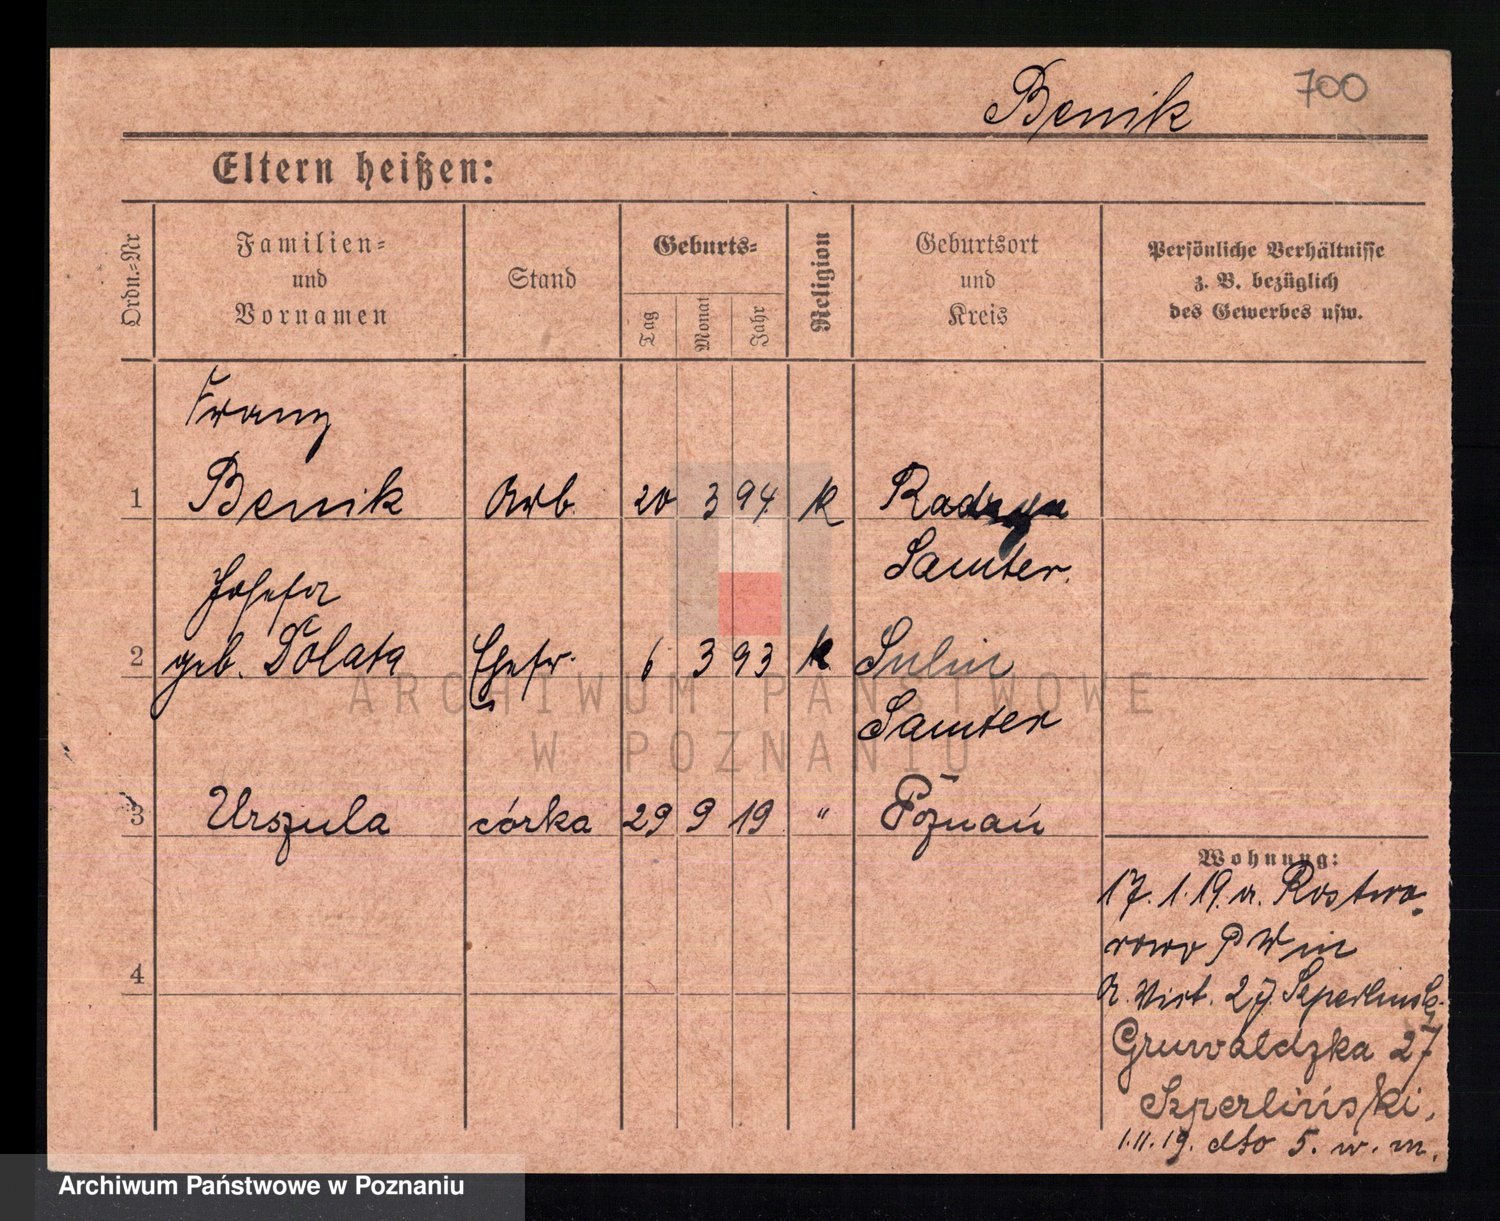 Benik 700
Eltern heißen:
Ordn.=Nr
Familien=
und
Vornamen
Stand
Geburts=
Tag
Monat
Jahr
Religion
Geburtsort
und
Kreis
Persönliche Verhältnisse
z. B. bezüglich
des Gewerbes usw.
Franz
1 Benik Arb. 20 3 94 k
Samter.
Josefa
2 geb. Polata Ehefr. 6 3 93 k Sulin
Samter
3 Urszula córka 29 9 19 " Poznań
4
Wohnung:
17. 1. 19. a. Rostwo=
rowo P Win
A. Wirt. 27. Szperlinsk
Grunwaldzka 27
Szperliński.
1.11.19. dto 5. w. m.
ARCHIWUM PAŃSTWOWE
W POZNANIU
Archiwum Państwowe w Poznaniu